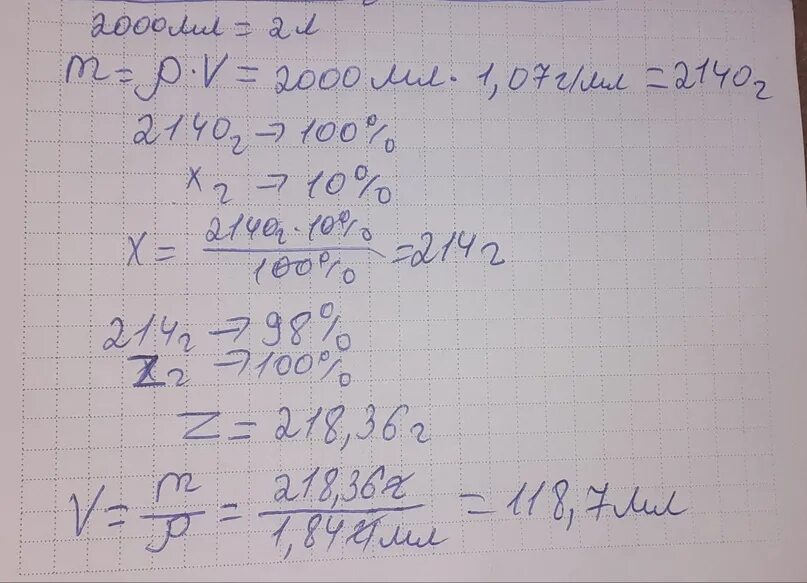 2000мл = 2л
m = ρ·V = 2000 мл · 1,07г/мл = 2140г
2140г → 100%
xг → 10%
x = 2140г · 10% / 100% = 214г
214г → 98%
zг → 100%
z = 218,36г
V = m / ρ = 218,36г / 1,84г/мл = 118,7мл